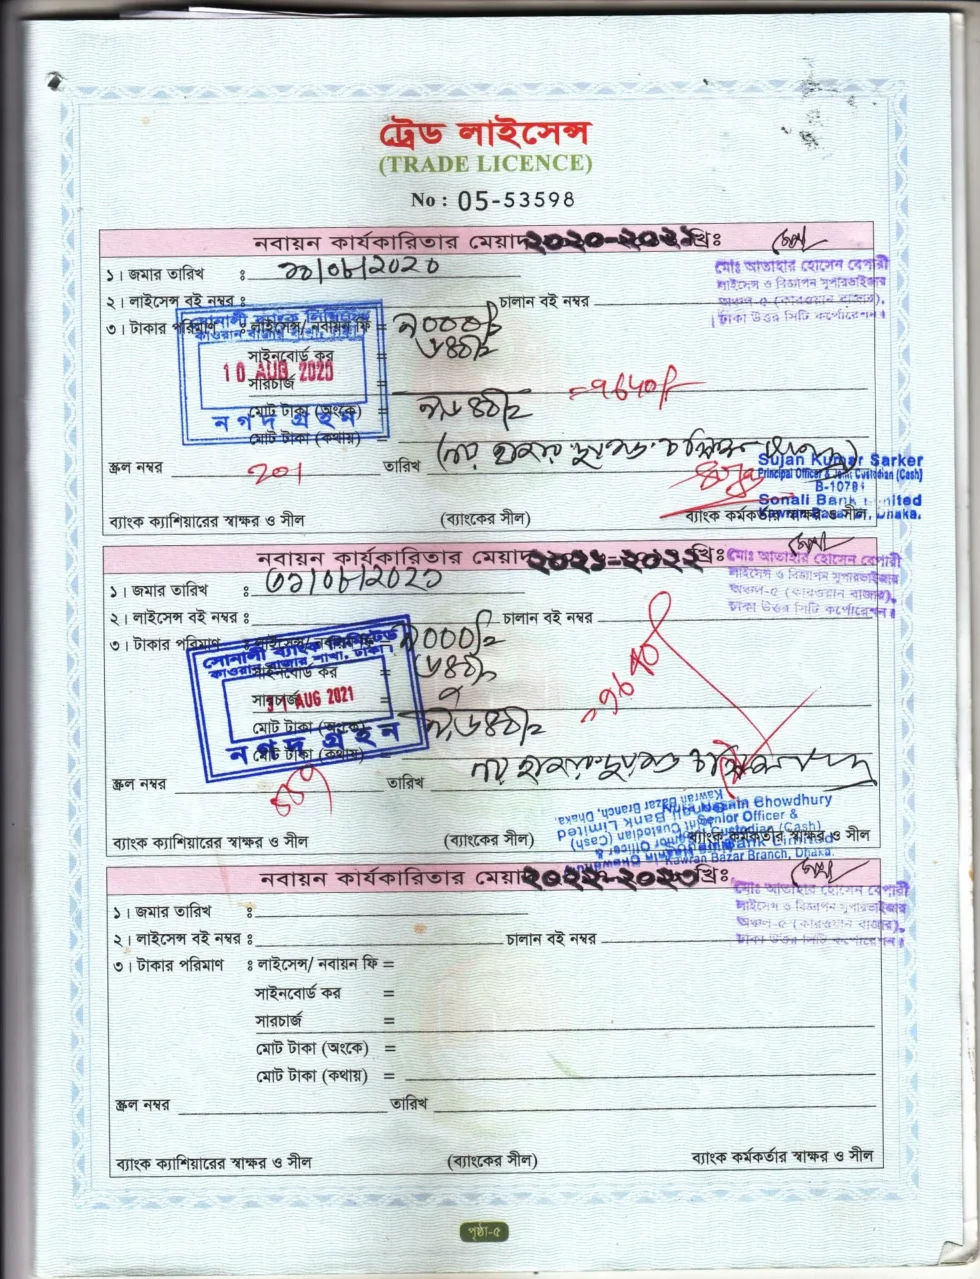 ট্রেড লাইসেন্স
(TRADE LICENCE)
No : 05-53598
নবায়ন কার্যকারিতার মেয়াদ ২০২০-২০২১ খ্রিঃ
মোঃ আতাহার হোসেন বেপারী
লাইসেন্স ও বিজ্ঞাপন সুপারভাইজার
অঞ্চল-৫ (কারওয়ান বাজার),
ঢাকা উত্তর সিটি কর্পোরেশন।
১। জমার তারিখ : ১০/০৮/২০২০
২। লাইসেন্স বই নম্বর : চালান বই নম্বর
৩। টাকার পরিমাণ : লাইসেন্স/ নবায়ন ফি =
সাইনবোর্ড কর =
সারচার্জ =
মোট টাকা (অংকে) =
=9640/-
মোট টাকা (কথায়) =
সোনালী ব্যাংক লিমিটেড
কাওরান বাজার শাখা, ঢাকা।
10 AUG 2020
নগদ গ্রহন
স্ক্রল নম্বর 201 তারিখ
Sujan Kumar Sarker
Principal Officer & Joint Custodian (Cash)
Sonali Bank Limited
Kawran Bazar Br, Dhaka.
ব্যাংক ক্যাশিয়ারের স্বাক্ষর ও সীল (ব্যাংকের সীল) ব্যাংক কর্মকর্তার স্বাক্ষর ও সীল
নবায়ন কার্যকারিতার মেয়াদ ২০২১-২০২২ খ্রিঃ
মোঃ আতাহার হোসেন বেপারী
লাইসেন্স ও বিজ্ঞাপন সুপারভাইজার
অঞ্চল-৫ (কারওয়ান বাজার),
ঢাকা উত্তর সিটি কর্পোরেশন।
১। জমার তারিখ : ৩১/০৮/২০২১
২। লাইসেন্স বই নম্বর : চালান বই নম্বর
৩। টাকার পরিমাণ : লাইসেন্স/ নবায়ন ফি =
সাইনবোর্ড কর =
সারচার্জ =
মোট টাকা (অংকে) =
=9640/-
মোট টাকা (কথায়) =
সোনালী ব্যাংক লিমিটেড
কাওরান বাজার শাখা, ঢাকা।
31 AUG 2021
নগদ গ্রহন
স্ক্রল নম্বর তারিখ
Chowdhury
Senior Officer &
Joint Custodian (Cash)
Sonali Bank Limited
Kawran Bazar Branch, Dhaka.
ব্যাংক ক্যাশিয়ারের স্বাক্ষর ও সীল (ব্যাংকের সীল) ব্যাংক কর্মকর্তার স্বাক্ষর ও সীল
নবায়ন কার্যকারিতার মেয়াদ ২০২২-২০২৩ খ্রিঃ
মোঃ আতাহার হোসেন বেপারী
লাইসেন্স ও বিজ্ঞাপন সুপারভাইজার
অঞ্চল-৫ (কারওয়ান বাজার),
ঢাকা উত্তর সিটি কর্পোরেশন।
১। জমার তারিখ :
২। লাইসেন্স বই নম্বর : চালান বই নম্বর
৩। টাকার পরিমাণ : লাইসেন্স/ নবায়ন ফি =
সাইনবোর্ড কর =
সারচার্জ =
মোট টাকা (অংকে) =
মোট টাকা (কথায়) =
স্ক্রল নম্বর তারিখ
ব্যাংক ক্যাশিয়ারের স্বাক্ষর ও সীল (ব্যাংকের সীল) ব্যাংক কর্মকর্তার স্বাক্ষর ও সীল
পৃষ্ঠা-৫